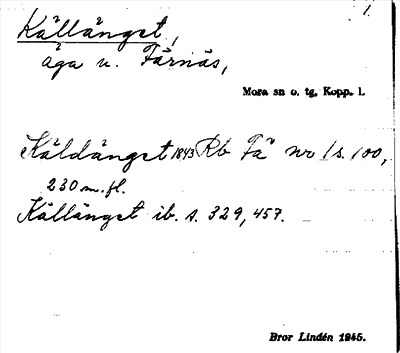 1.
Källänget,
äga u. Färnäs,
Mora sn o. tg, Kopp. l.
Käldänget 1843 Rb Fä nr 1 s. 100,
230 m.fl.
Källänget ib. s. 329, 457.
Bror Lindén 1945.